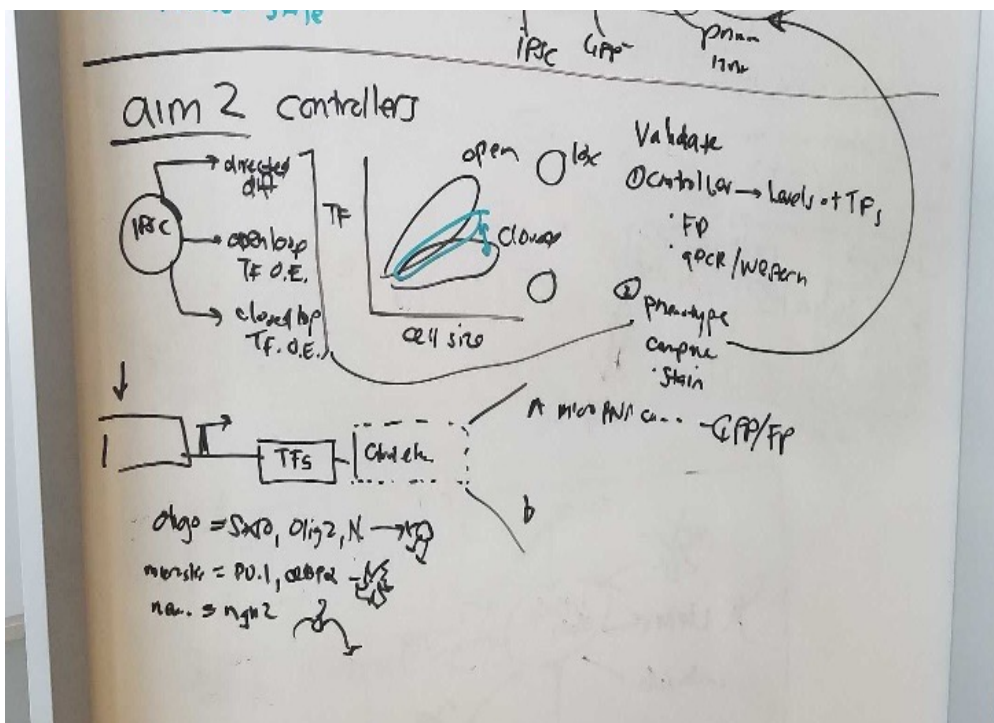 iPSC
aim 2 controllers
iPSC
directed
diff
open loop
TF O.E.
closed loop
T.F. O.E.
TF
open
closed
cell size
Validate
① Controller → Levels of TFs
· FP
· qPCR/Western
② phenotype
compare
· Stain
TFs
A micro RNA
GPP/FP
b
oligo = Sox10, Olig2, N
= PU.1,
= ngn2